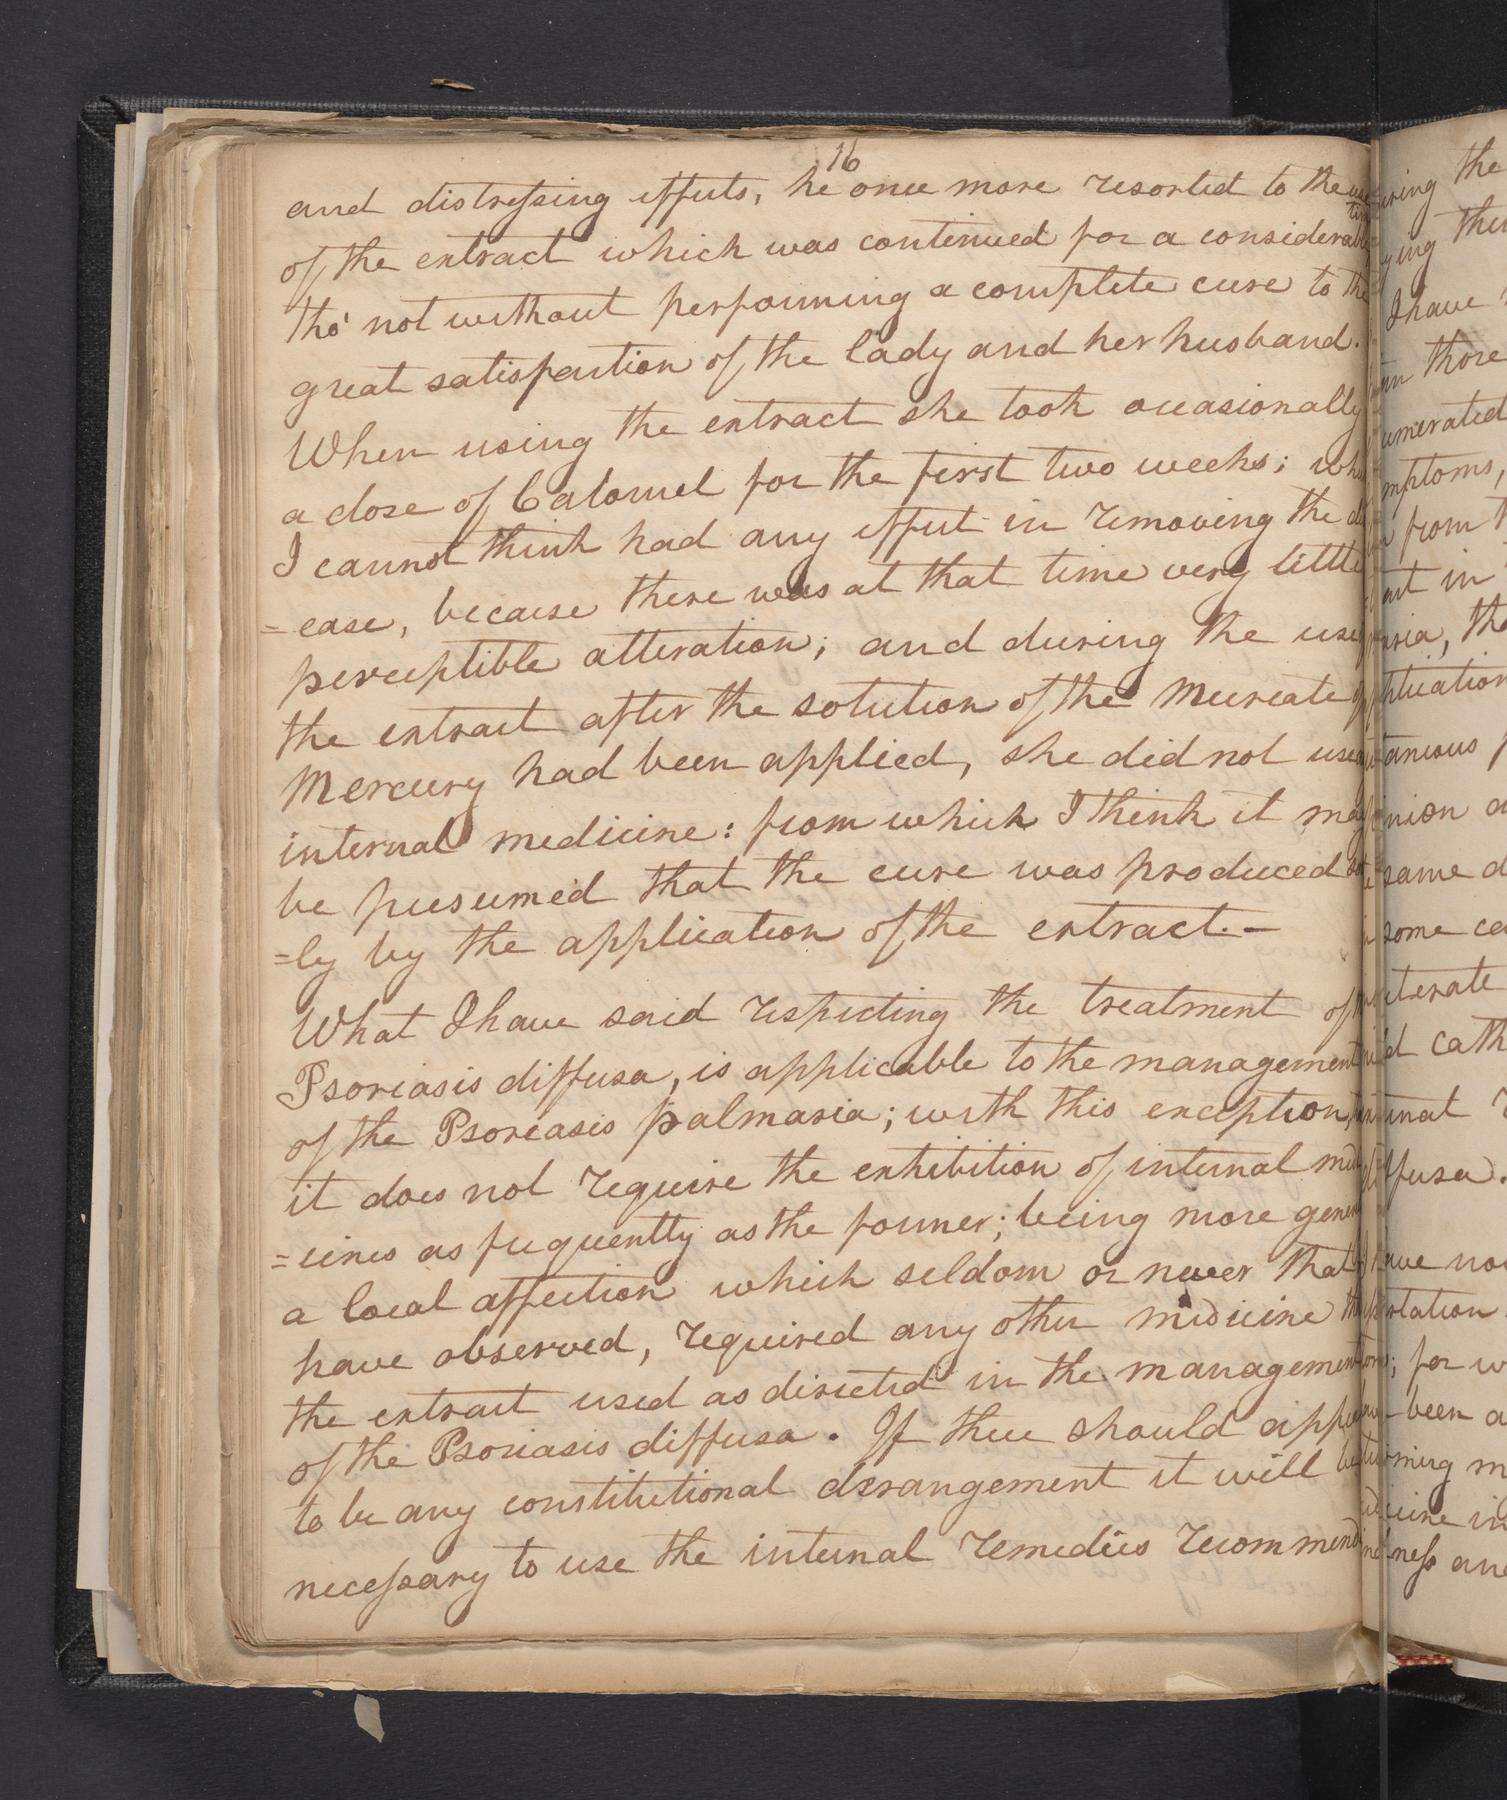 16
and distressing effects, he once more resorted to the use
of the extract which was continued for a considerable
tho' not without performing a complete cure to the
great satisfaction of the lady and her husband.
When using the extract she took occasionally
a dose of Calomel for the first two weeks; wh
I cannot think had any effect in removing the
=ease, because there was at that time very little
perceptible alteration; and during the use
the extract after the solution of the Muriate of
Mercury had been applied, she did not use
internal medicine: from which I think it may
be presumed that the cure was produced so
=ly by the application of the extract.—
What I have said respecting the treatment of
Psoriasis diffusa, is applicable to the management
of the Psoriasis palmaria; with this exception,
it does not require the exhibition of internal med
=cines as frequently as the former; being more gener
a local affection which seldom or never that
have observed, required any other medicine th
the extract used as directed in the management
of the Psoriasis diffusa. If there should appear
to be any constitutional derangement it will be
necessary to use the internal remedies recommend
ring the
ying
I have
in those
umerated
mptoms,
from
in
aria, the
plication
taneous
inion
same
some ca
iterate
cath
ffusa.
have no
station
for w
been a
oming m
cine in
ness and